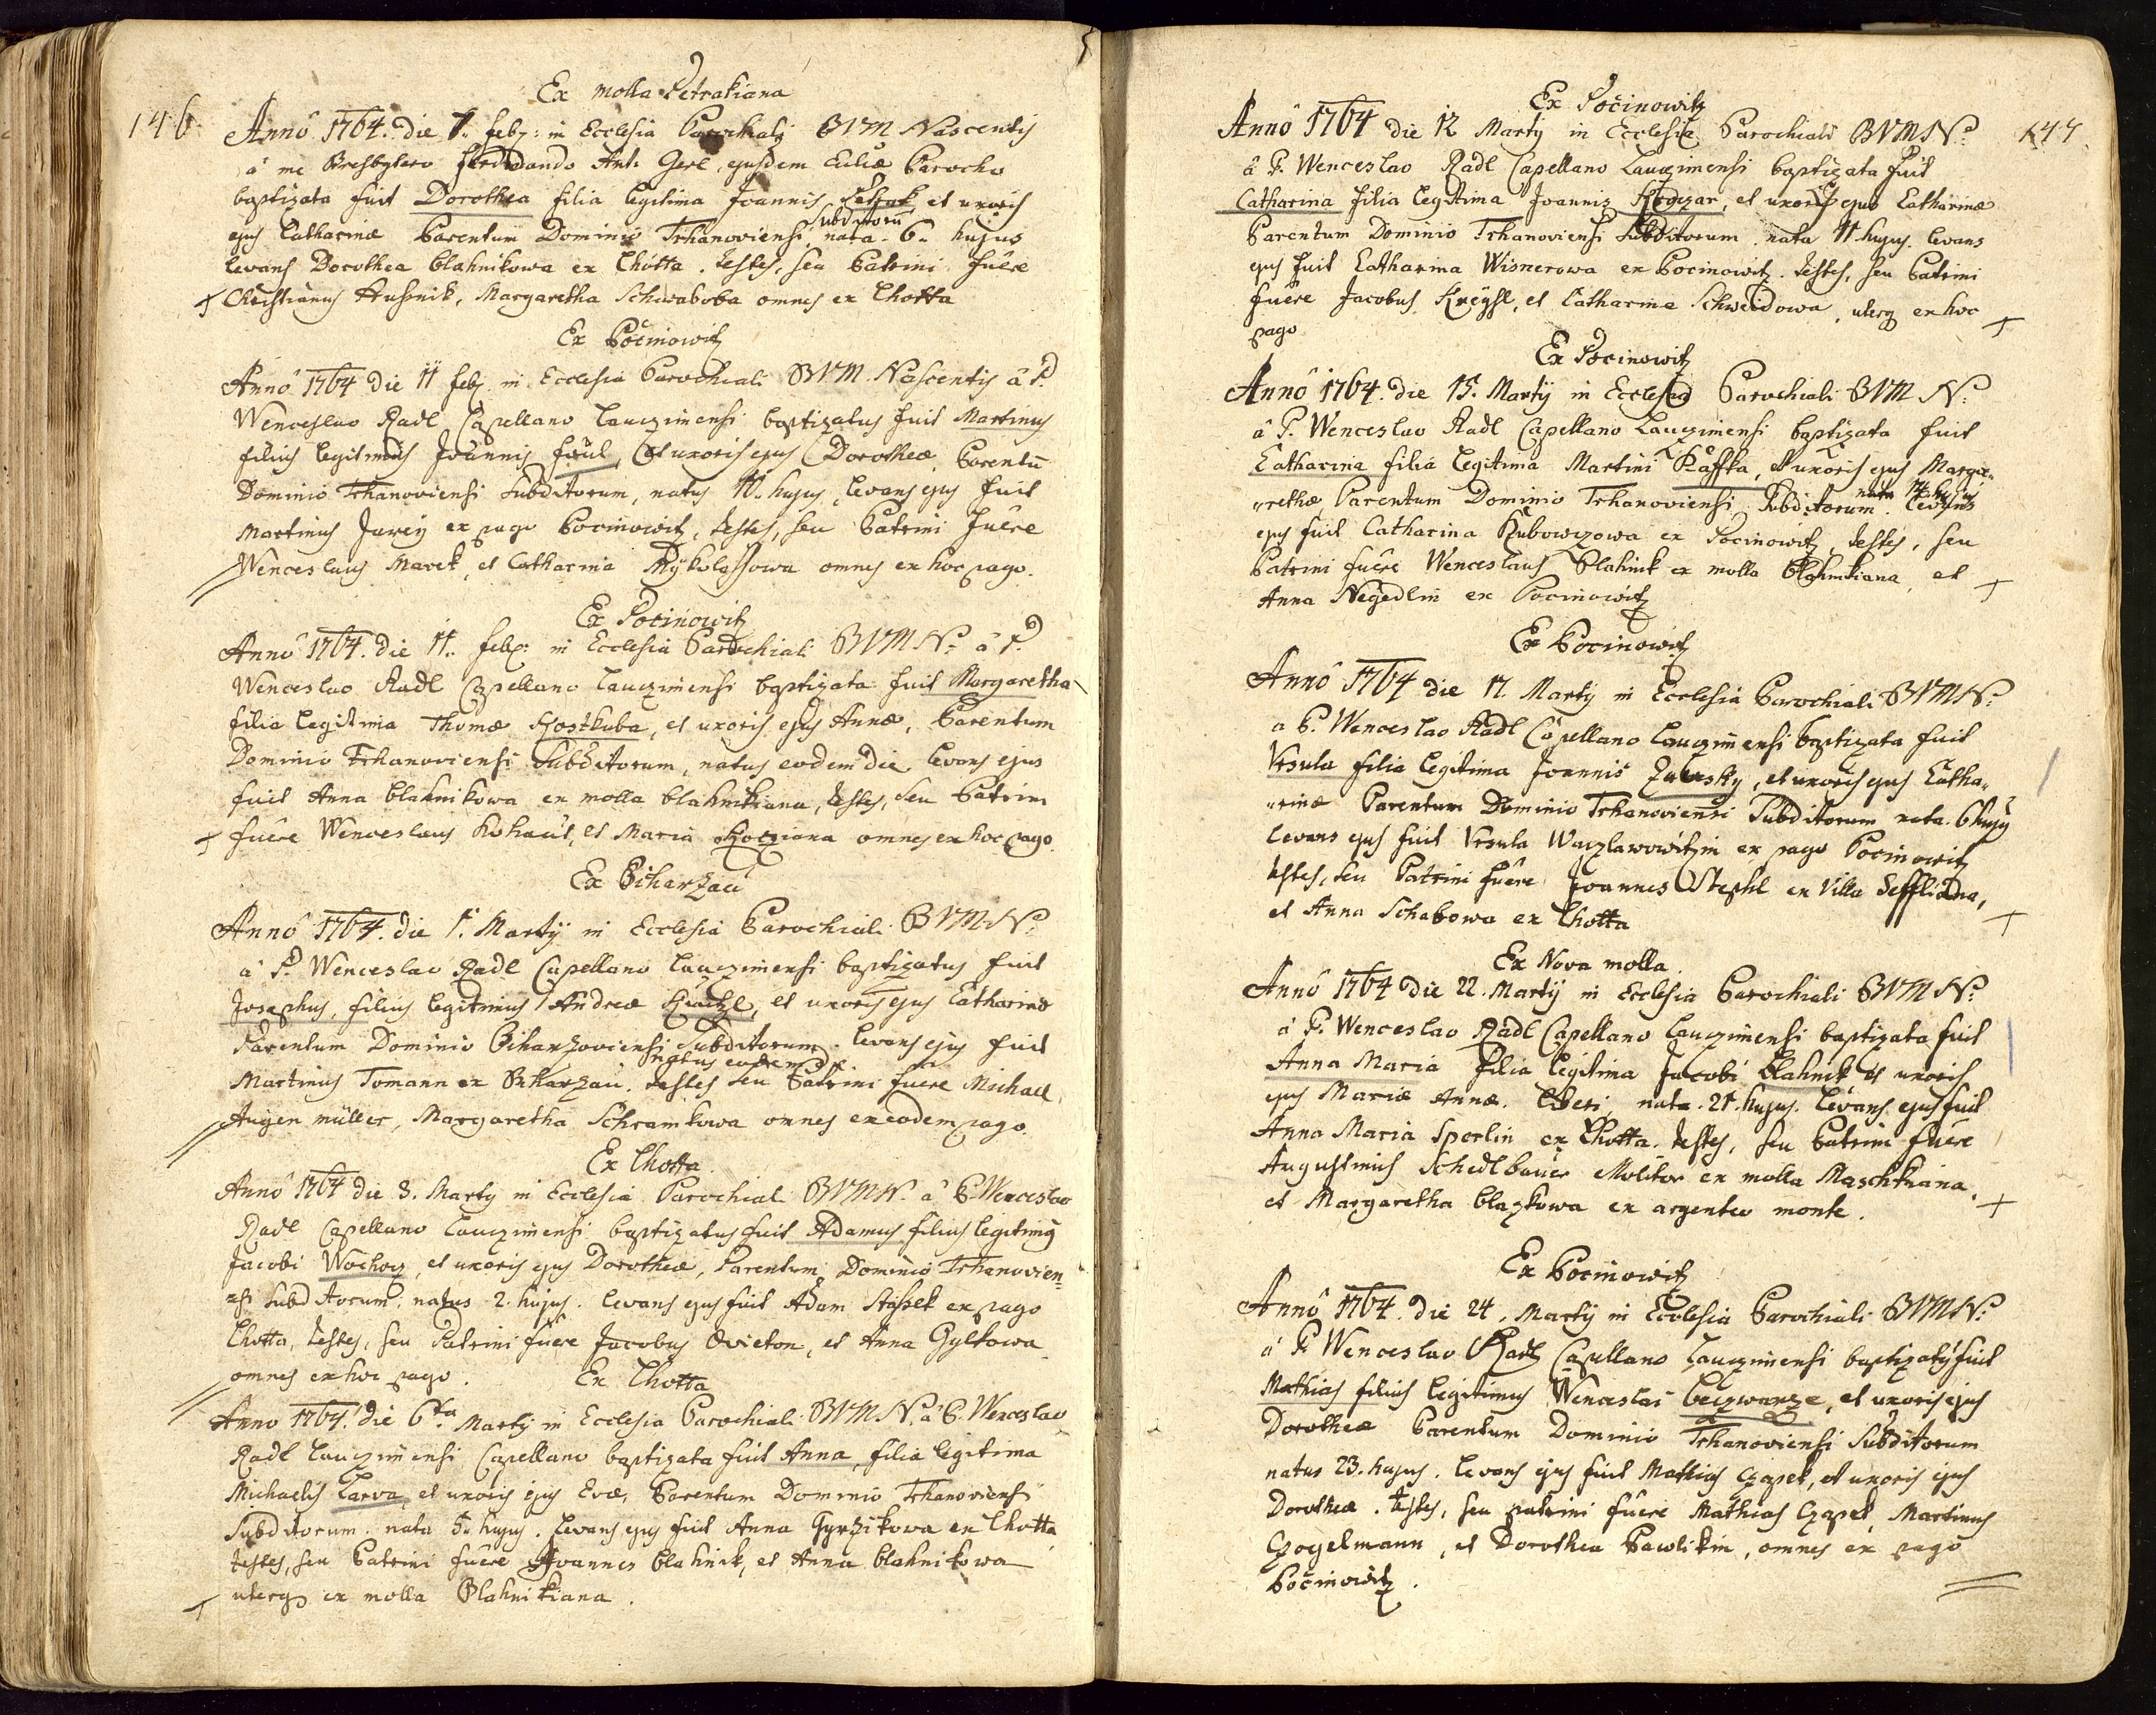 Ex molla Petrakiana
146. Annô 1764. die 7. feb: in Ecclesia Parochiali BVM Nascentis
â me Presbytero Ferdinando Ant. Gerl, ejusdem Eccliæ Parocho
baptizata fuit Dorothea filia legitima Joannis Petrak et uxoris
ejus Catharinæ Parentum Dominio Trhanoviensi Subditorū nata 6. hujus
levans Dorothea blahnikowa ex Chotta. testes, seu Patrini fuêre
Christianus Hussnik, Margaretha omnes ex Lhotta
Ex Počinowitz
Annô 1764 die 11 feb. in Ecclesia Parochiali BVM Nascentis â P.
Wenceslao Radl Capellano Lauczimensi baptizatus fuit Martinus
filius legitimus Joannis et uxoris ejus Dorotheæ, Parentū
Dominio Trhanoviensi Subditorum, natus 10. hujus, levans ejus fuit
Martinus Jurey ex pago Pocinowitz, testes, seu Patrini fuêre
Wenceslaus Marek, et Catharina omnes ex hoc pago.
Ex Pocinowitz
Annô 1764. die 11. feb: in Ecclesia Parochiali BVM N: â P.
Wenceslao Radl Capellano Lauczimensi baptizata fuit Margaretha
filia legitima Thomæ Kostkuba, et uxoris ejus Annæ, Parentum
Dominio Trhanoviensi Subditorum, natus eodem die levans ejus
fuit Anna blahnikowa ex molla blahnikiana, testes, seu Patrini
fuêre Wenceslaus Kohaut, et Maria omnes ex hoc pago.
Ex Biharzau
Annô 1764. die 1. Martÿ in Ecclesia Parochiali BVM N:
â P. Wenceslao Radl Capellano Lauczimensi baptizatus fuit
Josephus, filius legitimus Andreæ et uxoris ejus Catharinæ
Parentum Dominio Biharzoviensi Subditorum. levans ejus fuit
natus eodem die
Martinus Tomann ex Biharzau. testes seu Patrini fuêre Michael
Augen müller, Margaretha Schramkowa omnes ex eodem pago.
Ex Lhotta.
Annô 1764 die 3. Martÿ in Ecclesia Parochiali BVM N. â P. Wenceslao
Radl Capellano Lauczimensi baptizatus fuit Adamus filius legitimus
Jacobi Wochoz, et uxoris ejus Dorotheæ, Parentum Dominio Trhanovien-
=si Subditorum. natus 2. hujus. levans ejus fuit Adam ex pago
Lhotta, testes, seu Patrini fuêre Jacobus Ovieton, et Anna Gyltowa
omnes ex hoc pago.
Ex Lhotta
Anno 1764. die 6ta Martÿ in Ecclesia Parochiali BVM N. â P. Wenceslao
Radl Lauczimensi Capellano baptizata fuit Anna, filia legitima
Michaelis Larva, et uxoris ejus Evæ, Parentum Dominio Trhanoviensi
Subditorum. nata 5. hujus. levans ejus fuit Anna Gyrzikowa ex Lhotta
testes, seu Patrini fuêre Joannes blahnik, et Anna blahnikowa
uterq ex molla Blahnikiana.
Ex Počinowitz
147
Annô 1764 die 12 Martÿ in Ecclesia Parochiali BVM N:
â P. Wenceslao Radl Capellano Lauczimensi baptizata fuit
Catharina filia legitima Joannis et uxoris ejus Catharinæ
Parentum Dominio Trhanoviensi Subditorum. nata 11 hujus. levans
ejus fuit Catharina Wisnerowa ex Pocinowitz. testes, seu Patrini
fuêre Jacobus et Catharina Schweidowa, uterq ex hoc
pago
Ex Pocinowitz
Annô 1764. die 15. Martÿ in Ecclesia Parochiali BVM N:
â P. Wenceslao Radl Capellano Lauczimensi baptizata fuit
Catharina filia legitima Martini Kaffka, et uxoris ejus Marga=
=rethæ, Parentum Dominio Trhanoviensi Subditorum. nata 14 hujus levans
ejus fuit Catharina Kubowczowa ex Pocinowitz, testes, seu
Patrini fuêre Wenceslaus Blahnik ex molla Blahnikiana, et
Anna Negedlin ex Pocinowitz
Ex Pocinowitz
Annô 1764 die 17. Martÿ in Ecclesia Parochiali BVM N:
â P. Wenceslao Radl Capellano Lauczimensi baptizata fuit
Vrsula filia legitima Joannis et uxoris ejus Catha=
=rinæ Parentum Dominio Trhanoviensi Subditorum nata 6 hujus
levans ejus fuit Vrsula Waczlawowitzin ex pago Pocinowitz
testes, seu Patrini fuêre Joannes Stephl ex Villa Seffliana,
et Anna Schabowa ex Lhotta
Ex Nova molla.
Annô 1764 die 22. Martÿ in Ecclesia Parochiali BVM N:
â P. Wenceslao Radl Capellano Lauczimensi baptizata fuit
Anna Maria filia legitima Jacobi blahnik et uxoris
ejus Mariæ Annæ. liberi, nata 21. hujus. levans ejus fuit
Anna Maria Sperlin ex Lhotta. testes, seu Patrini fuêre
Augustinus Schedlbauer Molitor ex molla Maschkiana,
et Margaretha blazkowa ex argenteo monte.
Ex Pocinowitz
Annô 1764. die 24. Martÿ in Ecclesia Parochiali BVM N:
â P. Wenceslao Radl Capellano Lauczimensi baptizatus fuit
Mathias filius legitimus Wenceslai beczwarze, et uxoris ejus
Dorotheæ Parentum Dominio Trhanoviensi Subditorum
natus 23. hujus. levans ejus fuit Mathias Czapek, et uxoris ejus
Dorotheæ. testes, seu patrini fuêre Mathias Czapek, Martinus
Czogelmann, et Dorothea Pawlikin, omnes ex pago
Počinowitz.